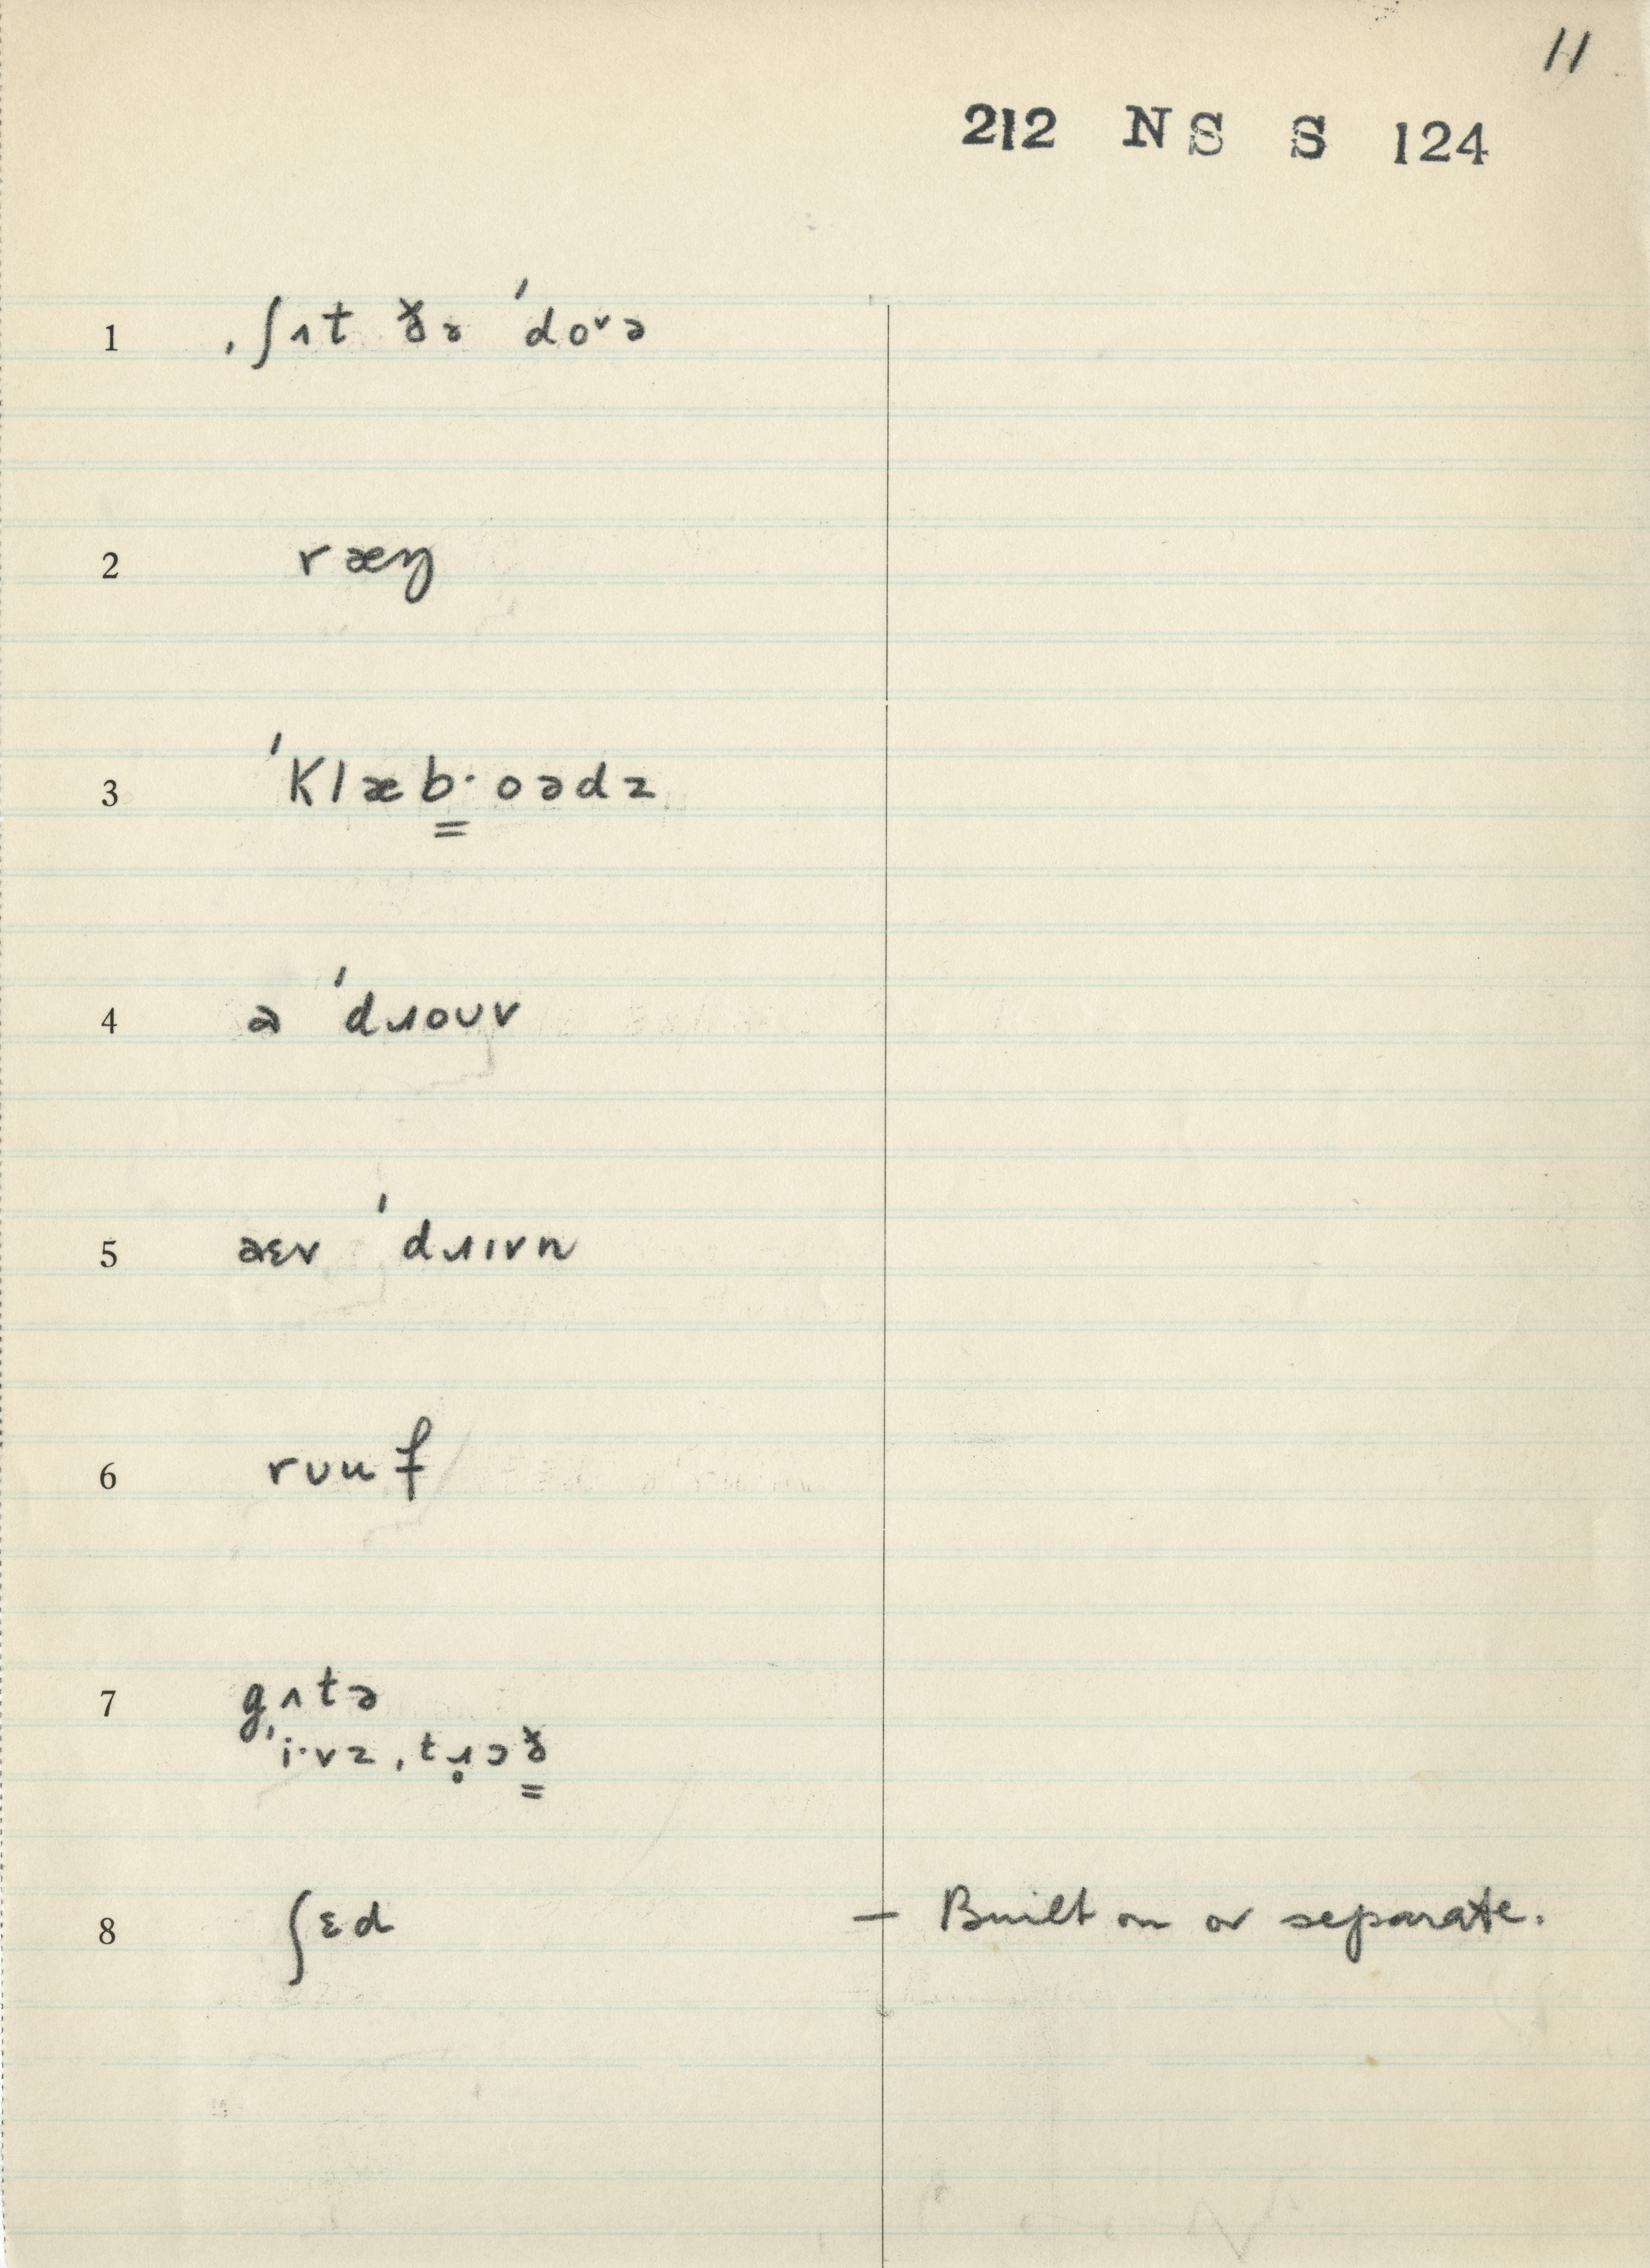 11
212 NS S 124
1 ˌʃʌt ðə ˈdoᵛə
2 ræŋ
3 ˈklæb̳·oədz
4 ə ˈdɹoʊv
5 əɛv ˈdɹɪvn
6 rʊuf
7 gʌtə
ˈi·vz ˌtɹ̥ɔð̳
8 ʃɛd — Built on or separate.